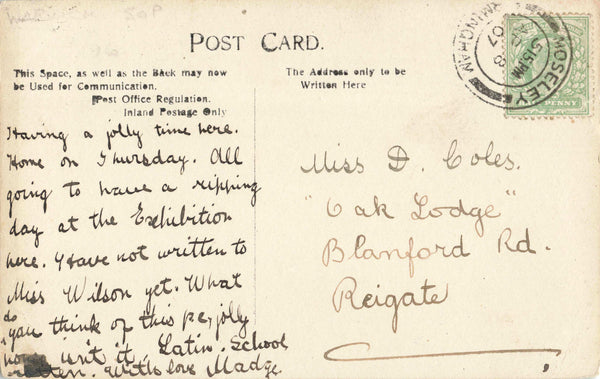 POST CARD.
This Space, as well as the Back may now
be Used for Communication.
(Post Office Regulation.
Inland Postage Only
The Address only to be
Written Here
MOSELEY
BIRMINGHAM
5.15 PM
8
07
PENNY
Having a jolly time here.
Home on Thursday. All
going to have a ripping
day at the Exhibition
here. I have not written to
Miss Wilson yet. What
do
you think of this pc, jolly
isn't it. Latin. School
With love Madge.
Miss D. Coles.
"Oak Lodge"
Blanford Rd.
Reigate